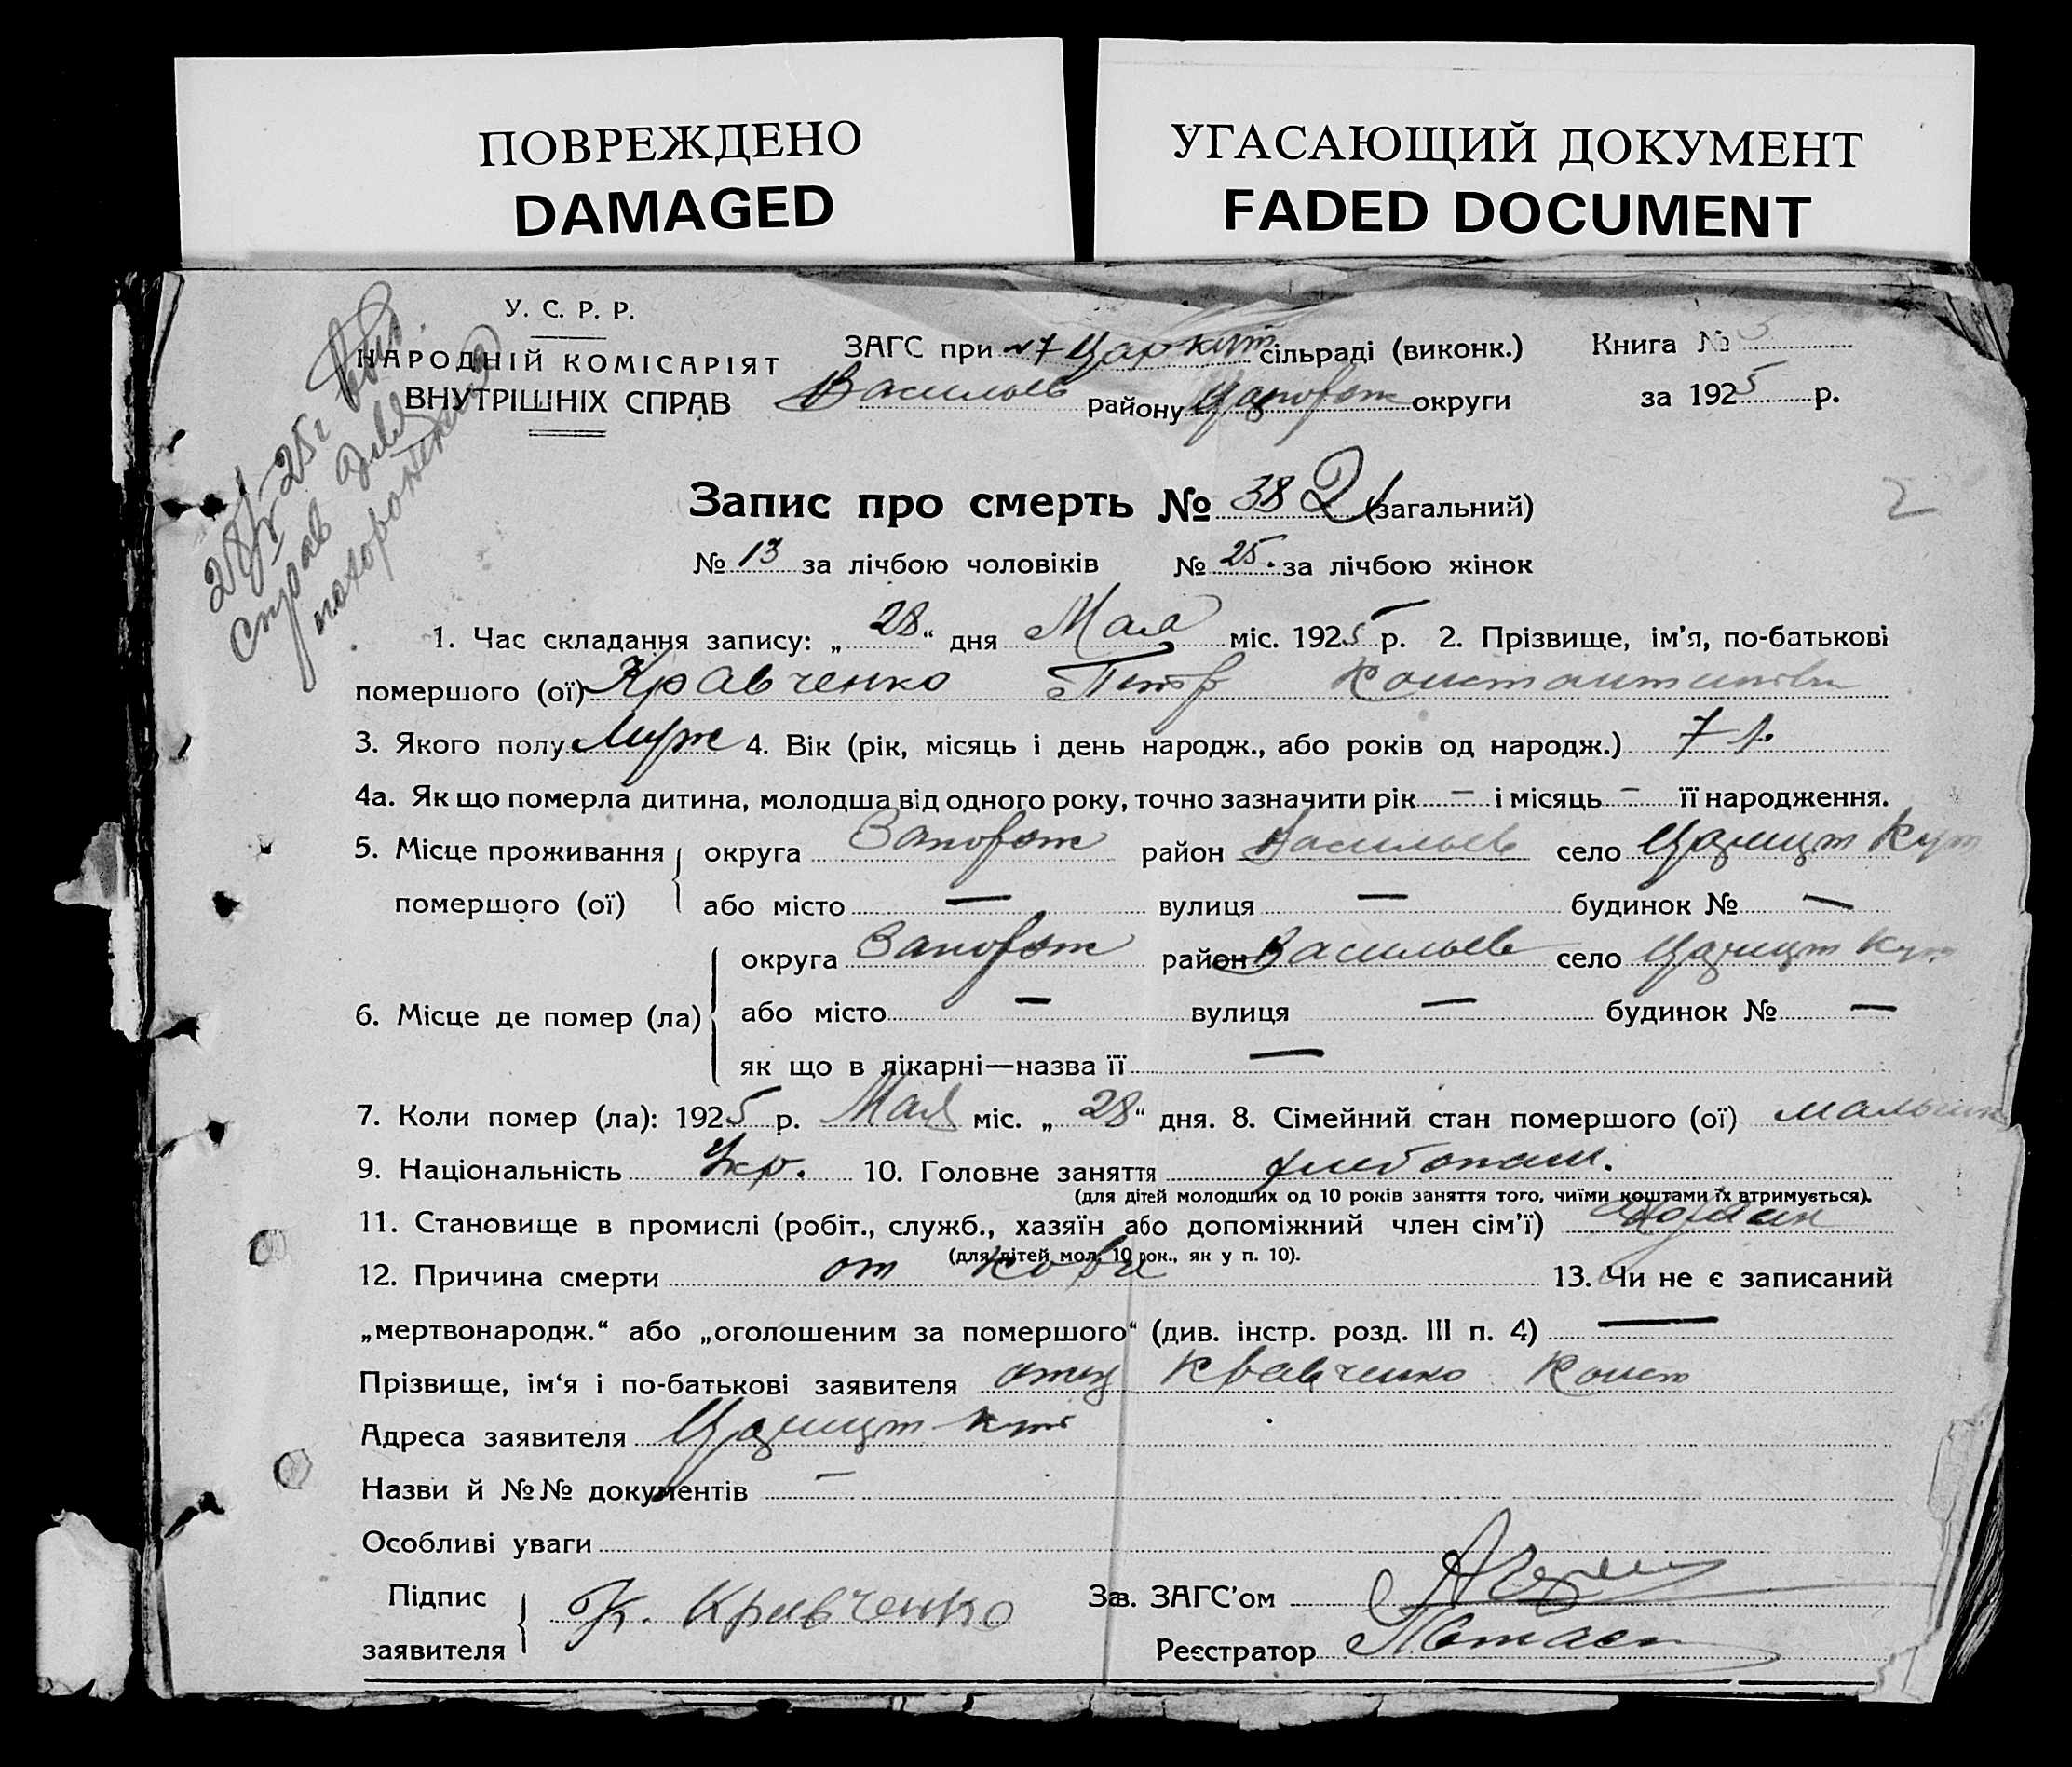 ПОВРЕЖДЕНО
DAMAGED
УГАСАЮЩИЙ ДОКУМЕНТ
FADED DOCUMENT
У. С. Р. Р.
НАРОДНІЙ КОМІСАРІЯТ
ВНУТРІШНІХ СПРАВ
28/V 25 г. выд.
справ для
похоронения
ЗАГС при Царкут сільраді (виконк.) Книга № 3
Васильев району Запорож округи за 1925 р.
Запис про смерть № 38 (загальний)
2
№ 13 за лічбою чоловіків № 25. за лічбою жінок
1. Час складання запису: „ 28 “ дня Мая міс. 1925 р. 2. Прізвище, ім’я, по-батькові
помершого (ої) Кравченко Петр Константинович
3. Якого полу Муж 4. Вік (рік, місяць і день народж., або років од народж.) 7 л.
4а. Як що померла дитина, молодша від одного року, точно зазначити рік — і місяць — її народження.
5. Місце проживання округа Запорож район Васильев село Царицит Кут
помершого (ої) або місто — вулиця — будинок № —
округа Запорож район Васильев село Царицит Кут
6. Місце де помер (ла) або місто — вулиця — будинок № —
як що в лікарні—назва її —
7. Коли помер (ла): 1925 р. Мая міс. „ 28 “ дня. 8. Сімейний стан помершого (ої) мальчик
9. Національність Укр. 10. Головне заняття хлебопаш.
(для дітей молодших од 10 років заняття того, чиїми коштами їх втримується).
11. Становище в промислі (робіт., служб., хазяїн або допоміжний член сім’ї) хозяин
(для дітей мол. 10 рок., як у п. 10).
12. Причина смерти от кори 13. Чи не є записаний
„мертвонародж.“ або „оголошеним за помершого“ (див. інстр. розд. III п. 4) —
Прізвище, ім‘я і по-батькові заявителя отец Кравченко Конст
Адреса заявителя Царицит Кут
Назви й №№ документів —
Особливі уваги
Підпис
заявителя К. Кравченко
Зав. ЗАГС’ом
Реєстратор